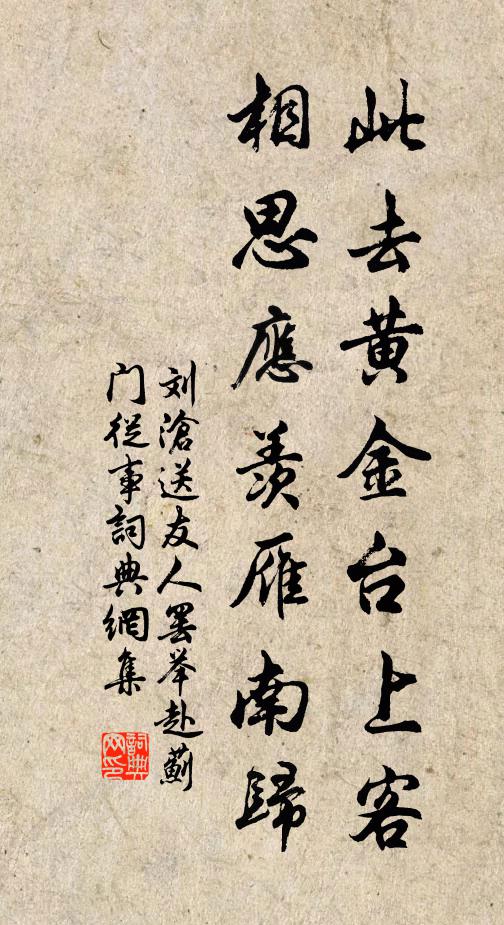 此去黄金台上客
相思應羨雁南歸
刘滄送友人罢举赴薊
门從事詞典網集
詞典
网印